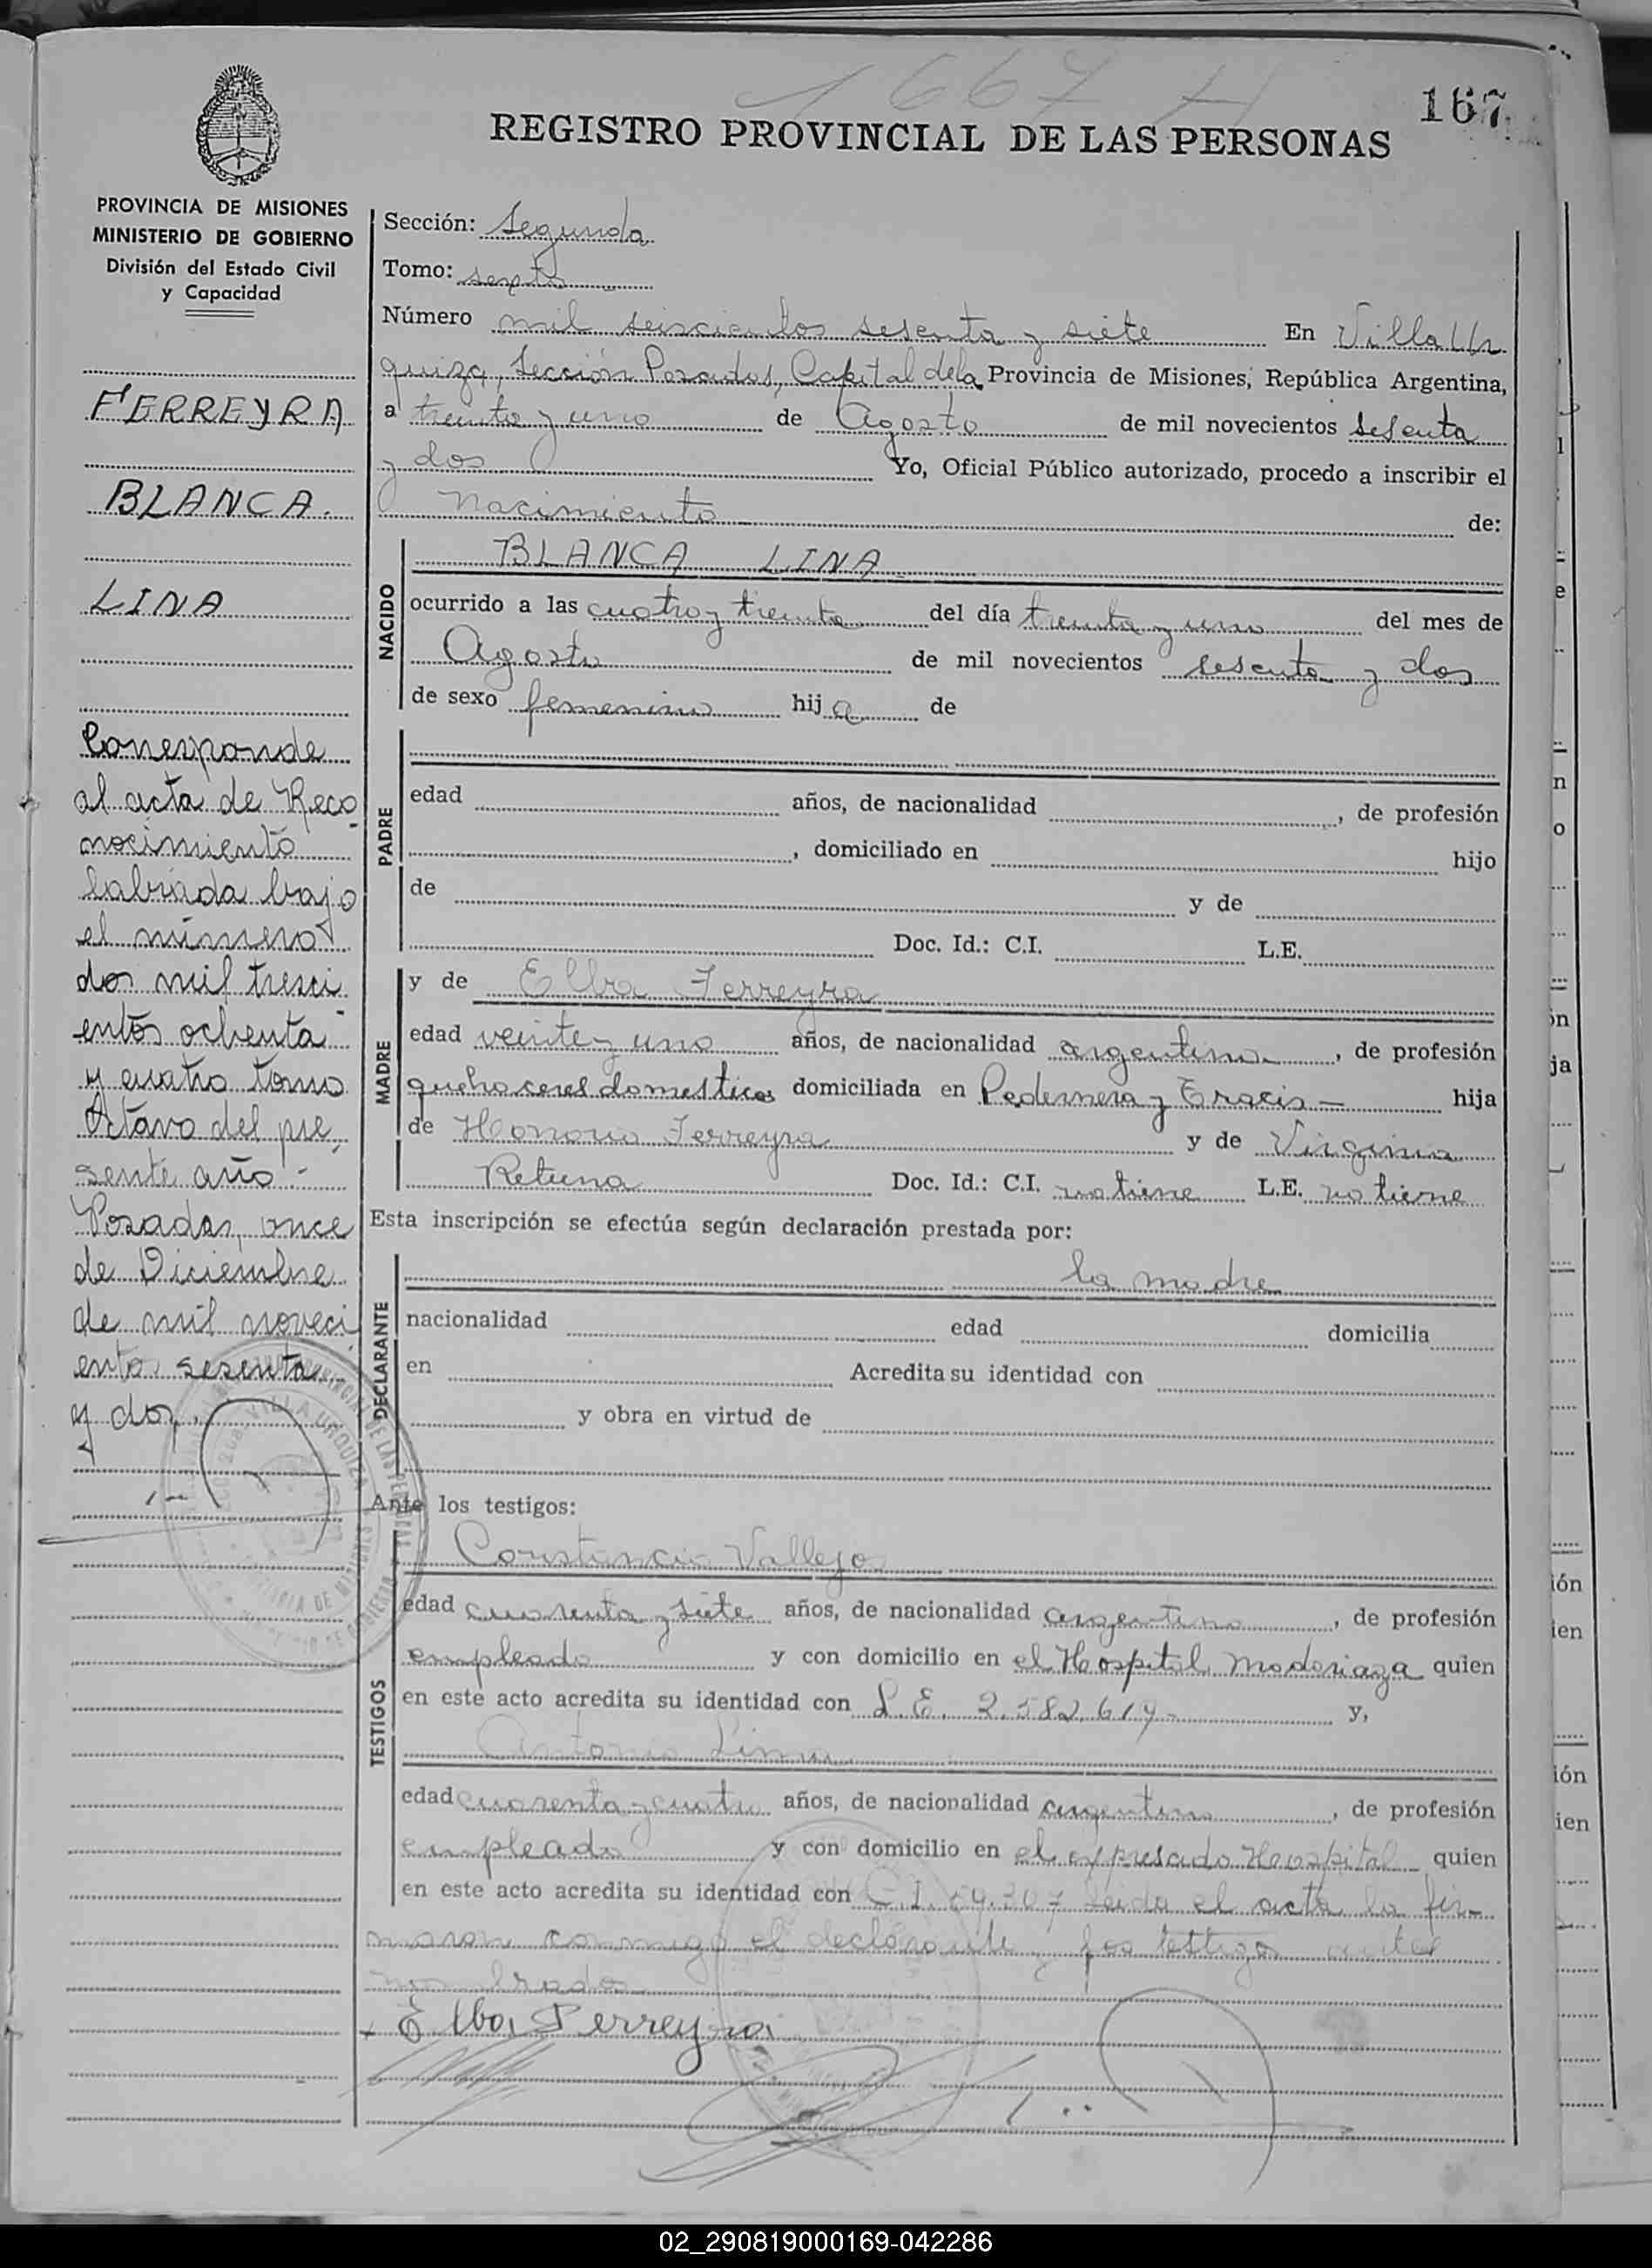 1667 H
167
REGISTRO PROVINCIAL DE LAS PERSONAS
PROVINCIA DE MISIONES
MINISTERIO DE GOBIERNO
División del Estado Civil
y Capacidad
FERREYRA
BLANCA.
LINA
Corresponde
al acta de Reco
nocimiento
labrada bajo
el número
dos mil tresci
entos ochenta
y cuatro tomo
Octavo del pre
sente año.-
Posadas, once
de Diciembre
de mil noveci
ento sesenta
y dos.
Sección: Segunda
Tomo: sexto
Número mil seiscientos sesenta y siete En Villa Ur
quiza, Sección Posadas, Capital de la Provincia de Misiones, República Argentina,
a treinta y uno de Agosto de mil novecientos sesenta
y dos Yo, Oficial Público autorizado, procedo a inscribir el
nacimiento de:
NACIDO
BLANCA LINA
ocurrido a las cuatro y treinta del día treinta y uno del mes de
Agosto de mil novecientos sesenta y dos
de sexo femenino hija de
PADRE
edad años, de nacionalidad , de profesión
, domiciliado en hijo
de y de
Doc. Id.: C.I. L.E.
MADRE
y de Elba Ferreyra
edad veinte y uno años, de nacionalidad argentina , de profesión
quehaceres domesticos domiciliada en Pedernera y hija
de Honorio Ferreyra y de Virginia
Retuna Doc. Id.: C.I. no tiene L.E. no tiene
Esta inscripción se efectúa según declaración prestada por:
DECLARANTE
la madre
nacionalidad edad domicilia
en Acredita su identidad con
y obra en virtud de
Ante los testigos:
TESTIGOS
Constancio Vallejo
edad cuarenta y siete años, de nacionalidad argentino , de profesión
empleado y con domicilio en el Hospital Madariaga quien
en este acto acredita su identidad con L.E. 2.582.619- y,
Antonio Lima
edad cuarenta y cuatro años, de nacionalidad argentino , de profesión
empleado y con domicilio en el expresado Hospital quien
en este acto acredita su identidad con C.I. 59.307 leida el acta la fir-
maron conmigo el declarante y los testigos antes
nombrados
Elba Ferreyra
02_290819000169-042286